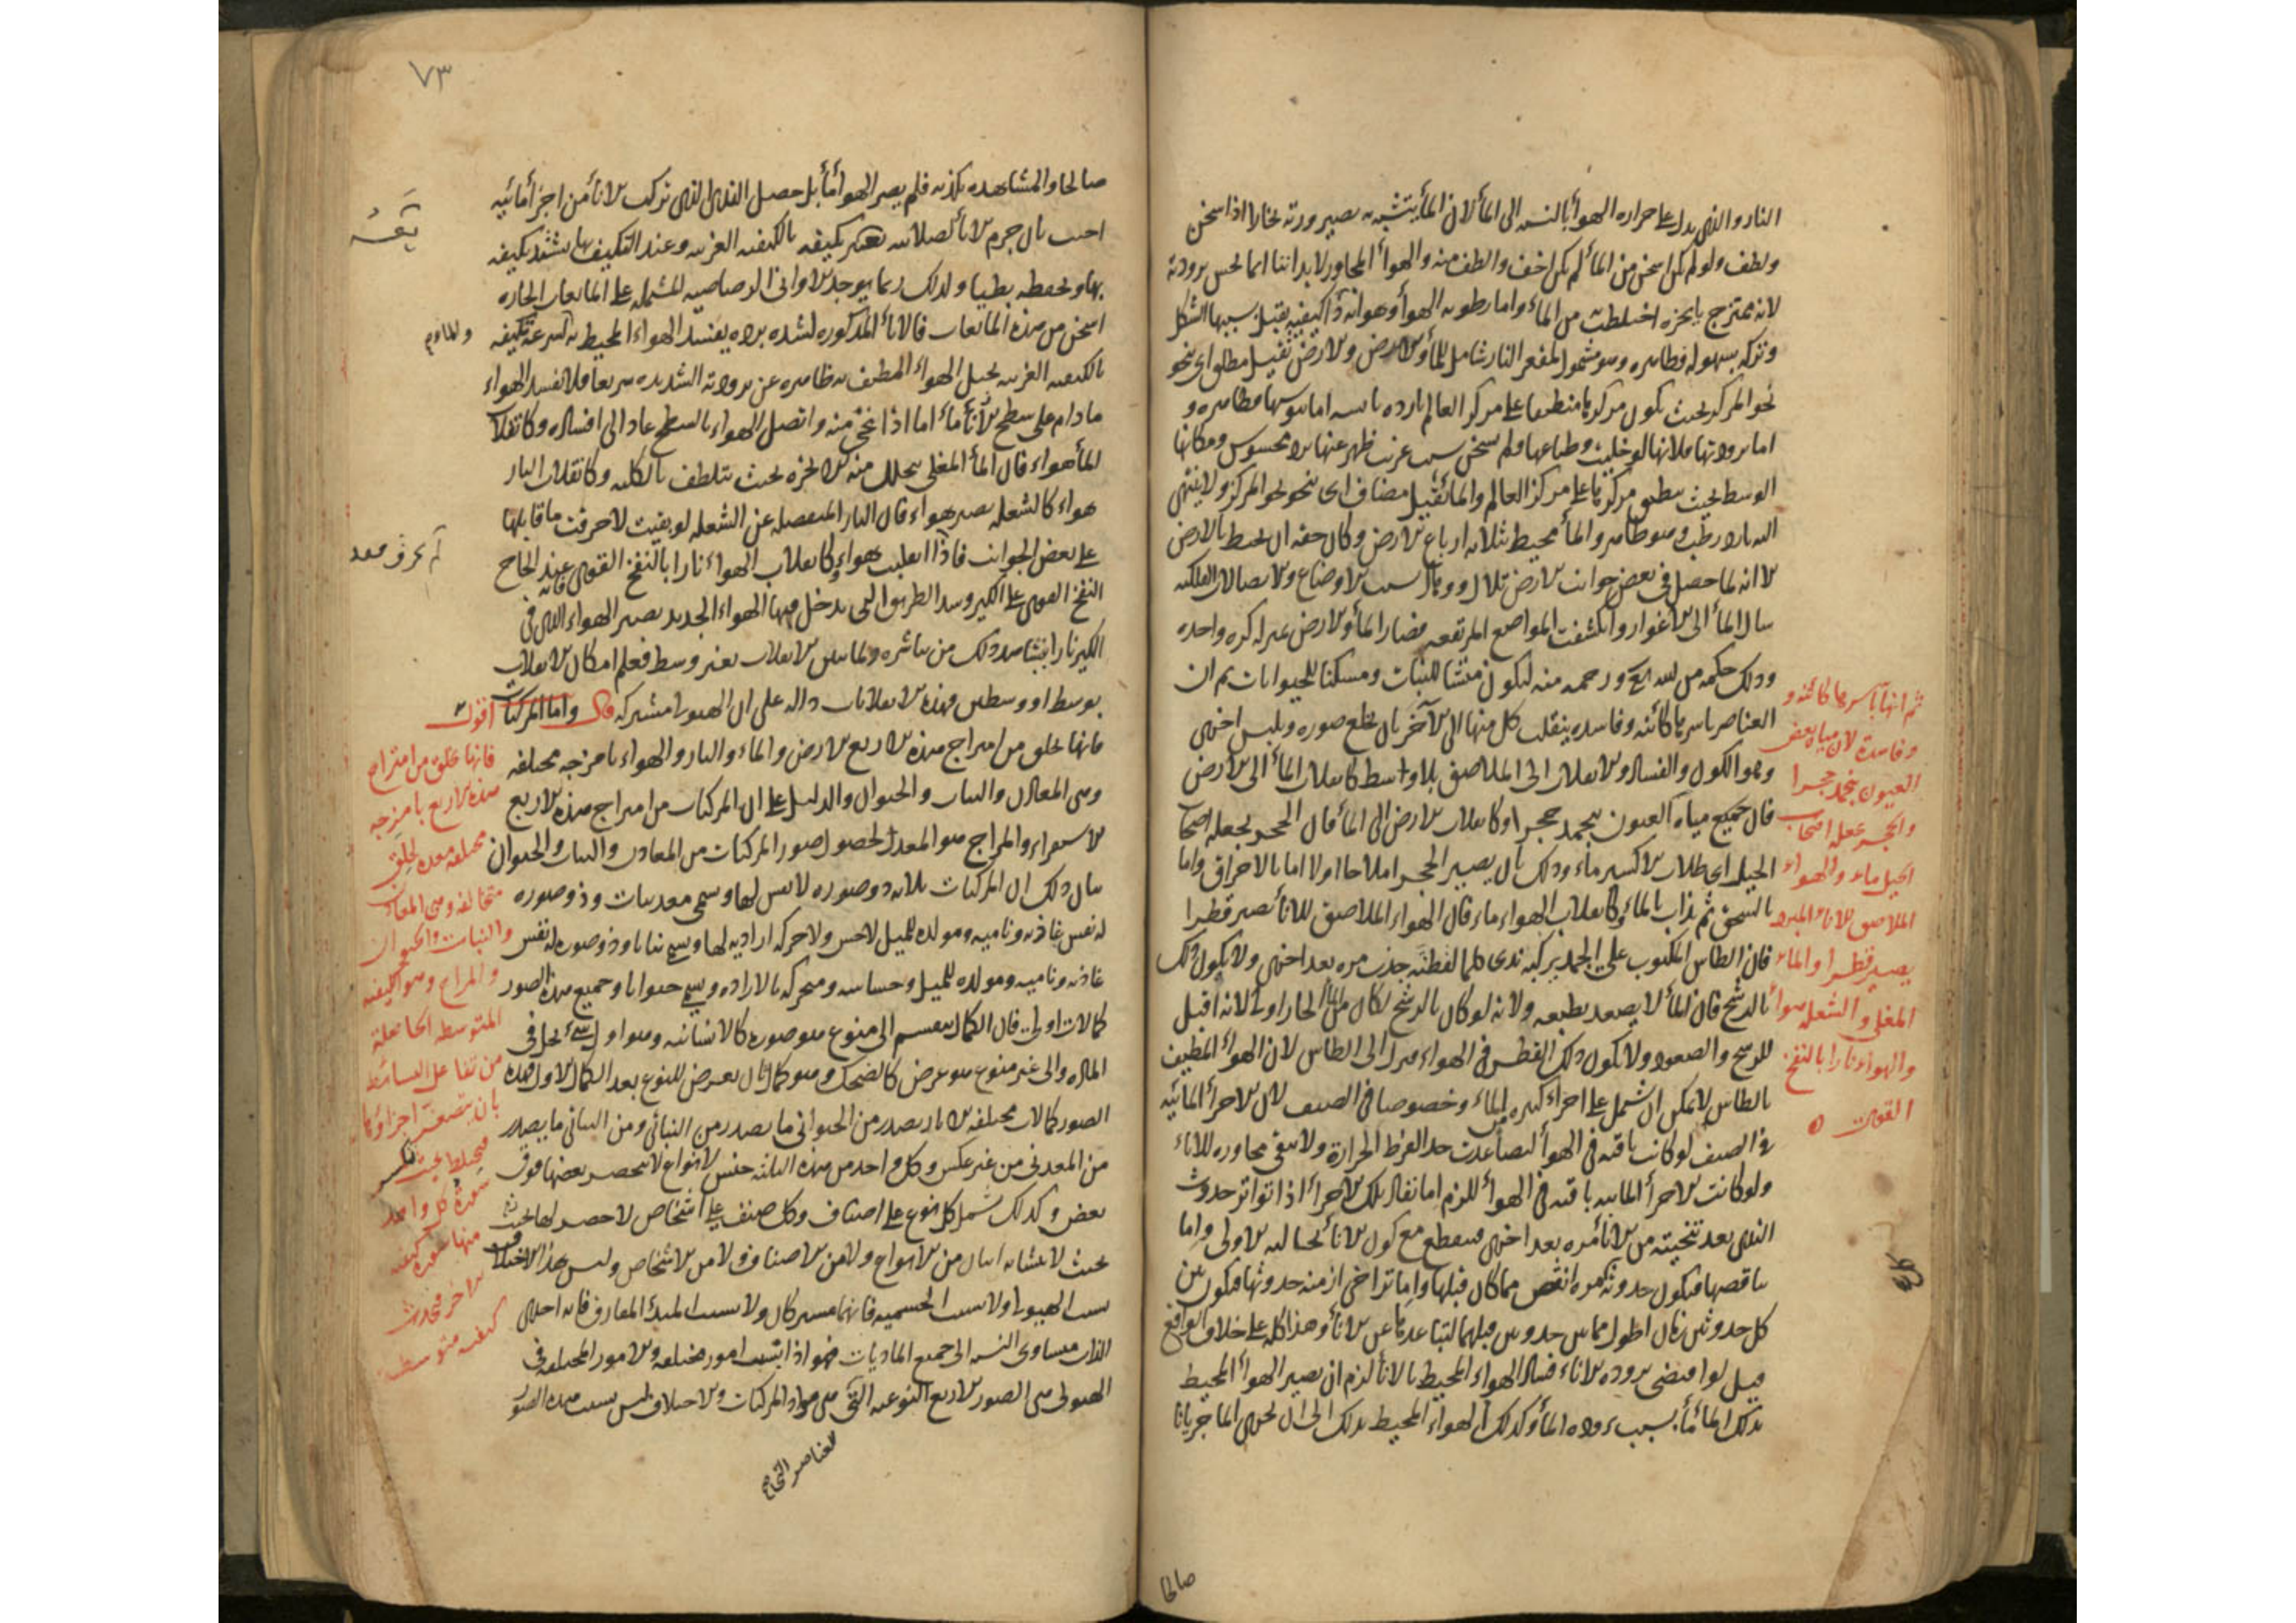 النار والذى يدل على حرارة الهوا بالنسبه الى الما لان الما يتشبه به بصيرورته بخارا اذا سخن
ولطف ولو لم يكن اسخن من الما لم يكن اخف والطف منه والهواء المجاور لابداننا انما نحس ببرودته
لانه ممتزج بابخرة اختلطت من الماء واما رطوبه الهوا وهو انه ذا كيفيه يقبل بسببها الشكل
وتركه بسهوله فظاهره وهو مشمول لمقعر النار شامل للما والارض والارض ثقيل مطلق اى ينحو
نحو المركز بحيث يكون مركزها منطبقا على مركز العالم بارده يابسه اما يبوستها فظاهره و
اما برودتها فلانها لو خليت وطباعها ولم تسخن بسبب غريب ظهر عنها برد محسوس ومكانها
الوسط بحيث ينطبق مركزها على مركز العالم والما ثقيل مضاف اى ينحو نحو المركز ولا ينتهى
اليه بارد رطب وهو ظاهر والما محيط بثلاثه ارباع الارض وكان حقه ان يحيط بالارض
الا انه لما حصل فى بعض جوانب الارض تلال ووهاد بسبب الاوضاع والاتصالات الفلكيه
سال الما الى الاغوار وانكشفت المواضع المرتفعه فصار الما والارض بمنزله كره واحده
وذلك حكمه من الله تع ورحمه منه ليكون منشا للنبات ومسكنا للحيوانات ثم ان
العناصر باسرها كائنه وفاسده ينقلب كل منها الى الآخر بان يخلع صوره ويلبس اخرى
وهو الكون والفساد والانقلاب الى الملاصق بلا واسط كانقلاب الما الى الارض
فان جميع مياه العيون ينجمد حجرا وكانقلاب الارض الى الما فان الحجر يجعله اصحاب
الحيل اى طلاب الاكسير ماء وذلك بان يصير الحجر املاحا اولا اما بالاحراق واما
بالسحق ثم يذاب بالماء وكانقلاب الهواء ماء فان الهواء الملاصق للانا يصير قطرا
فان الطاس المكبوب على الجمد يركبه ندى كلما لقطته حدث مره بعد اخرى ولا يكون ذلك
بالرشح فان الما لا يصعد بطبعه ولانه لو كان بالرشح لكان من الما الحار اولى لانه اقبل
للرشح والصعود ولا يكون ذلك القطر فى الهواء فنزل الى الطاس لان الهوا المطيف
بالطاس لا يمكن ان يشتمل على اجزاء كثيره من الماء وخصوصا فى الصيف لان الاجزا المائيه
فى الصيف لو كانت باقيه فى الهوا لتصاعدت جدا لفرط الحرارة ولا يبقى مجاوره للاناء
ولو كانت الاجزا المائيه باقيه فى الهوا للزم اما نفاد تلك الاجزا اذا تواتر حدوث
الندى بعد تنحيته من الانا مره بعد اخرى فينقطع مع كون الانا بحاله الاولى واما
تناقصها فيكون حدوثه كل مره انقص مما كان قبلها واما تراخى ازمنه حدوثها فيكون بين
كل حدوثين زمان اطول مما بين حدوثين قبلهما لتباعدها عن الانا وهذا كله على خلاف الواقع
قيل لو اقتضى بروده الاناء فساد الهواء المحيط بالانا لزم ان يصير الهوا المحيط
بذلك الما ماً بسبب بروده الما وكذلك الهواء المحيط بذلك الى ان يجرى الما جريانا
صالحا
ثم انها باسرها كائنه و
وفاسدة لان مياه بعض
العيون ينجمد حجرا
والحجر يجعله اصحاب
الحيل ماء والهواء
الملاصق للاناء المبرد
يصير قطرا والماء
المغلى والشعله هواء
والهواء نارا بالنفخ
القوى
٧٣
صالحا والمشاهده تكذبه فلم يصر الهوا ماً بل حصل الندى الذى تركب الانا من اجزا مائيه
اجيب بان جرم الانا لصلابته يعسر تكيفه بالكيفيه الغريبه وعند التكيف بها يشتد تكيفه
بها ويحفظه بطيا ولذلك ربما يوجد الاوانى الرصاصيه المشتمله على المائعات الحاره
اسخن من هذه المائعات فالانا المذكوره لشده برده يفسد الهواء المحيط به لسرعة تكيفه
بالكيفيه الغريبه يحيل الهواء المطيف به ظاهره عن برودته الشديده سريعا فلا يفسد الهواء
ما دام على سطح الانا ماء اما اذا نحى منه واتصل الهواء بالسطح عاد الى افساده وكانقلاب
الما هواء فان الما المغلى يتحلل منه الابخرة بحيث تتلطف بالكليه وكانقلاب النار
هواء كالشعله يصير هواء فان النار المنفصله عن الشعله لو بقيت لاحرقت ما قابلها
على بعض الجوانب فاذا انقلبت هواء وكانقلاب الهواء نارا بالنفخ القوى فانه عند الحاح
النفخ القوى على الكير وسد الطريق التى يدخل فيها الهواء الجديد يصير الهواء الذى فى
الكير نارا يشاهد ذلك من باشره ولما بين الانقلاب بغير وسط فعلم امكان الانقلاب
بوسط او وسطين وهذه الانقلابات داله على ان الهيولى مشتركه قال واما المركبات اقول
فانها تخلق من امتزاج هذه الاربع الارض والماء والنار والهواء بامزجه مختلفه
وهى المعادن والنبات والحيوان والدليل على ان المركبات من امتزاج هذه الاربع
الاستقراء والمزاج هو المعد لحصول صور المركبات من المعادن والنبات والحيوان
بيان ذلك ان المركبات ثلاثه ذو صوره لا نفس لها ويسمى معدنيات وذو صوره
له نفس غاذيه وناميه ومولده للميل لا حس ولا حركه اراديه لها ويسمى نباتا وذو صوره له نفس
غاذيه وناميه ومولده للميل وحساسه ومتحركه بالاراده ويسمى حيوانا وجميع هذه الصور
كمالات اولى فان الكمال ينقسم الى منوع هو صورة كالانسانيه وهو اول شئ يحل فى
الماده والى غير منوع هو عرض كالضحك وهو كمال ثان يعرض للنوع بعد الكمال الاول فهذه
الصور كمالات مختلفه الاثار يصدر من الحيوانى ما يصدر من النباتى ومن النباتى ما يصدر
من المعدنى من غير عكس وكل واحد من هذه الثلثه جنس لانواع لا ينحصر بعضها فوق
بعض وكذلك يشتمل كل نوع على اصناف وكل صنف على اشخاص لا حصر لها بحيث
بحيث لا يتشابه اثنان من الانواع ولا من الاصناف ولا من الاشخاص وليس هذا الاختلاف
بسبب الهيولى ولا بسبب الجسميه فانهما مشتركان ولا بسبب المبدا المفارق فانه احدى
الذات متساوى النسبه الى جميع الماديات فهو اذا بسبب امور مختلفه والامور المختلفه فى
الهيولى هى الصور الاربع النوعيه التى هى مواد المركبات والاختلاف ليس بسبب هذه الصور
فانها تخلق من امتزاج
هذه الاربع بامزجه
مختلفه معده لخلق
متخالفه وهى المعادن
والنبات والحيوان
والمزاج وهو كيفيه
المتوسطه الحاصلة
من تفاعل البسائط
بان يتصغر اجزاؤها
فيختلط بحيث تكسر
سورة كل واحد
منها سورة كيفيه
الاخر فيحدث
كيفيه متوسطه